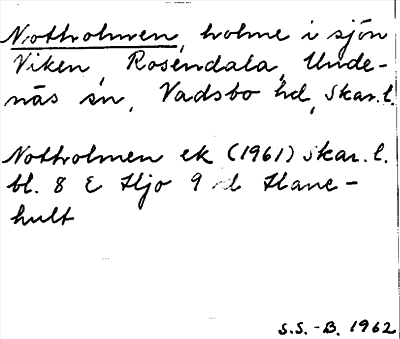 Notholmen, holme i sjön
Viken, Rosendala, Unde-
näs sn, Vadsbo hd, Skar. l.
Notholmen ek (1961) Skar. l.
bl. 8 E Hjo 9 d Hane-
hult
S.S. -B. 1962